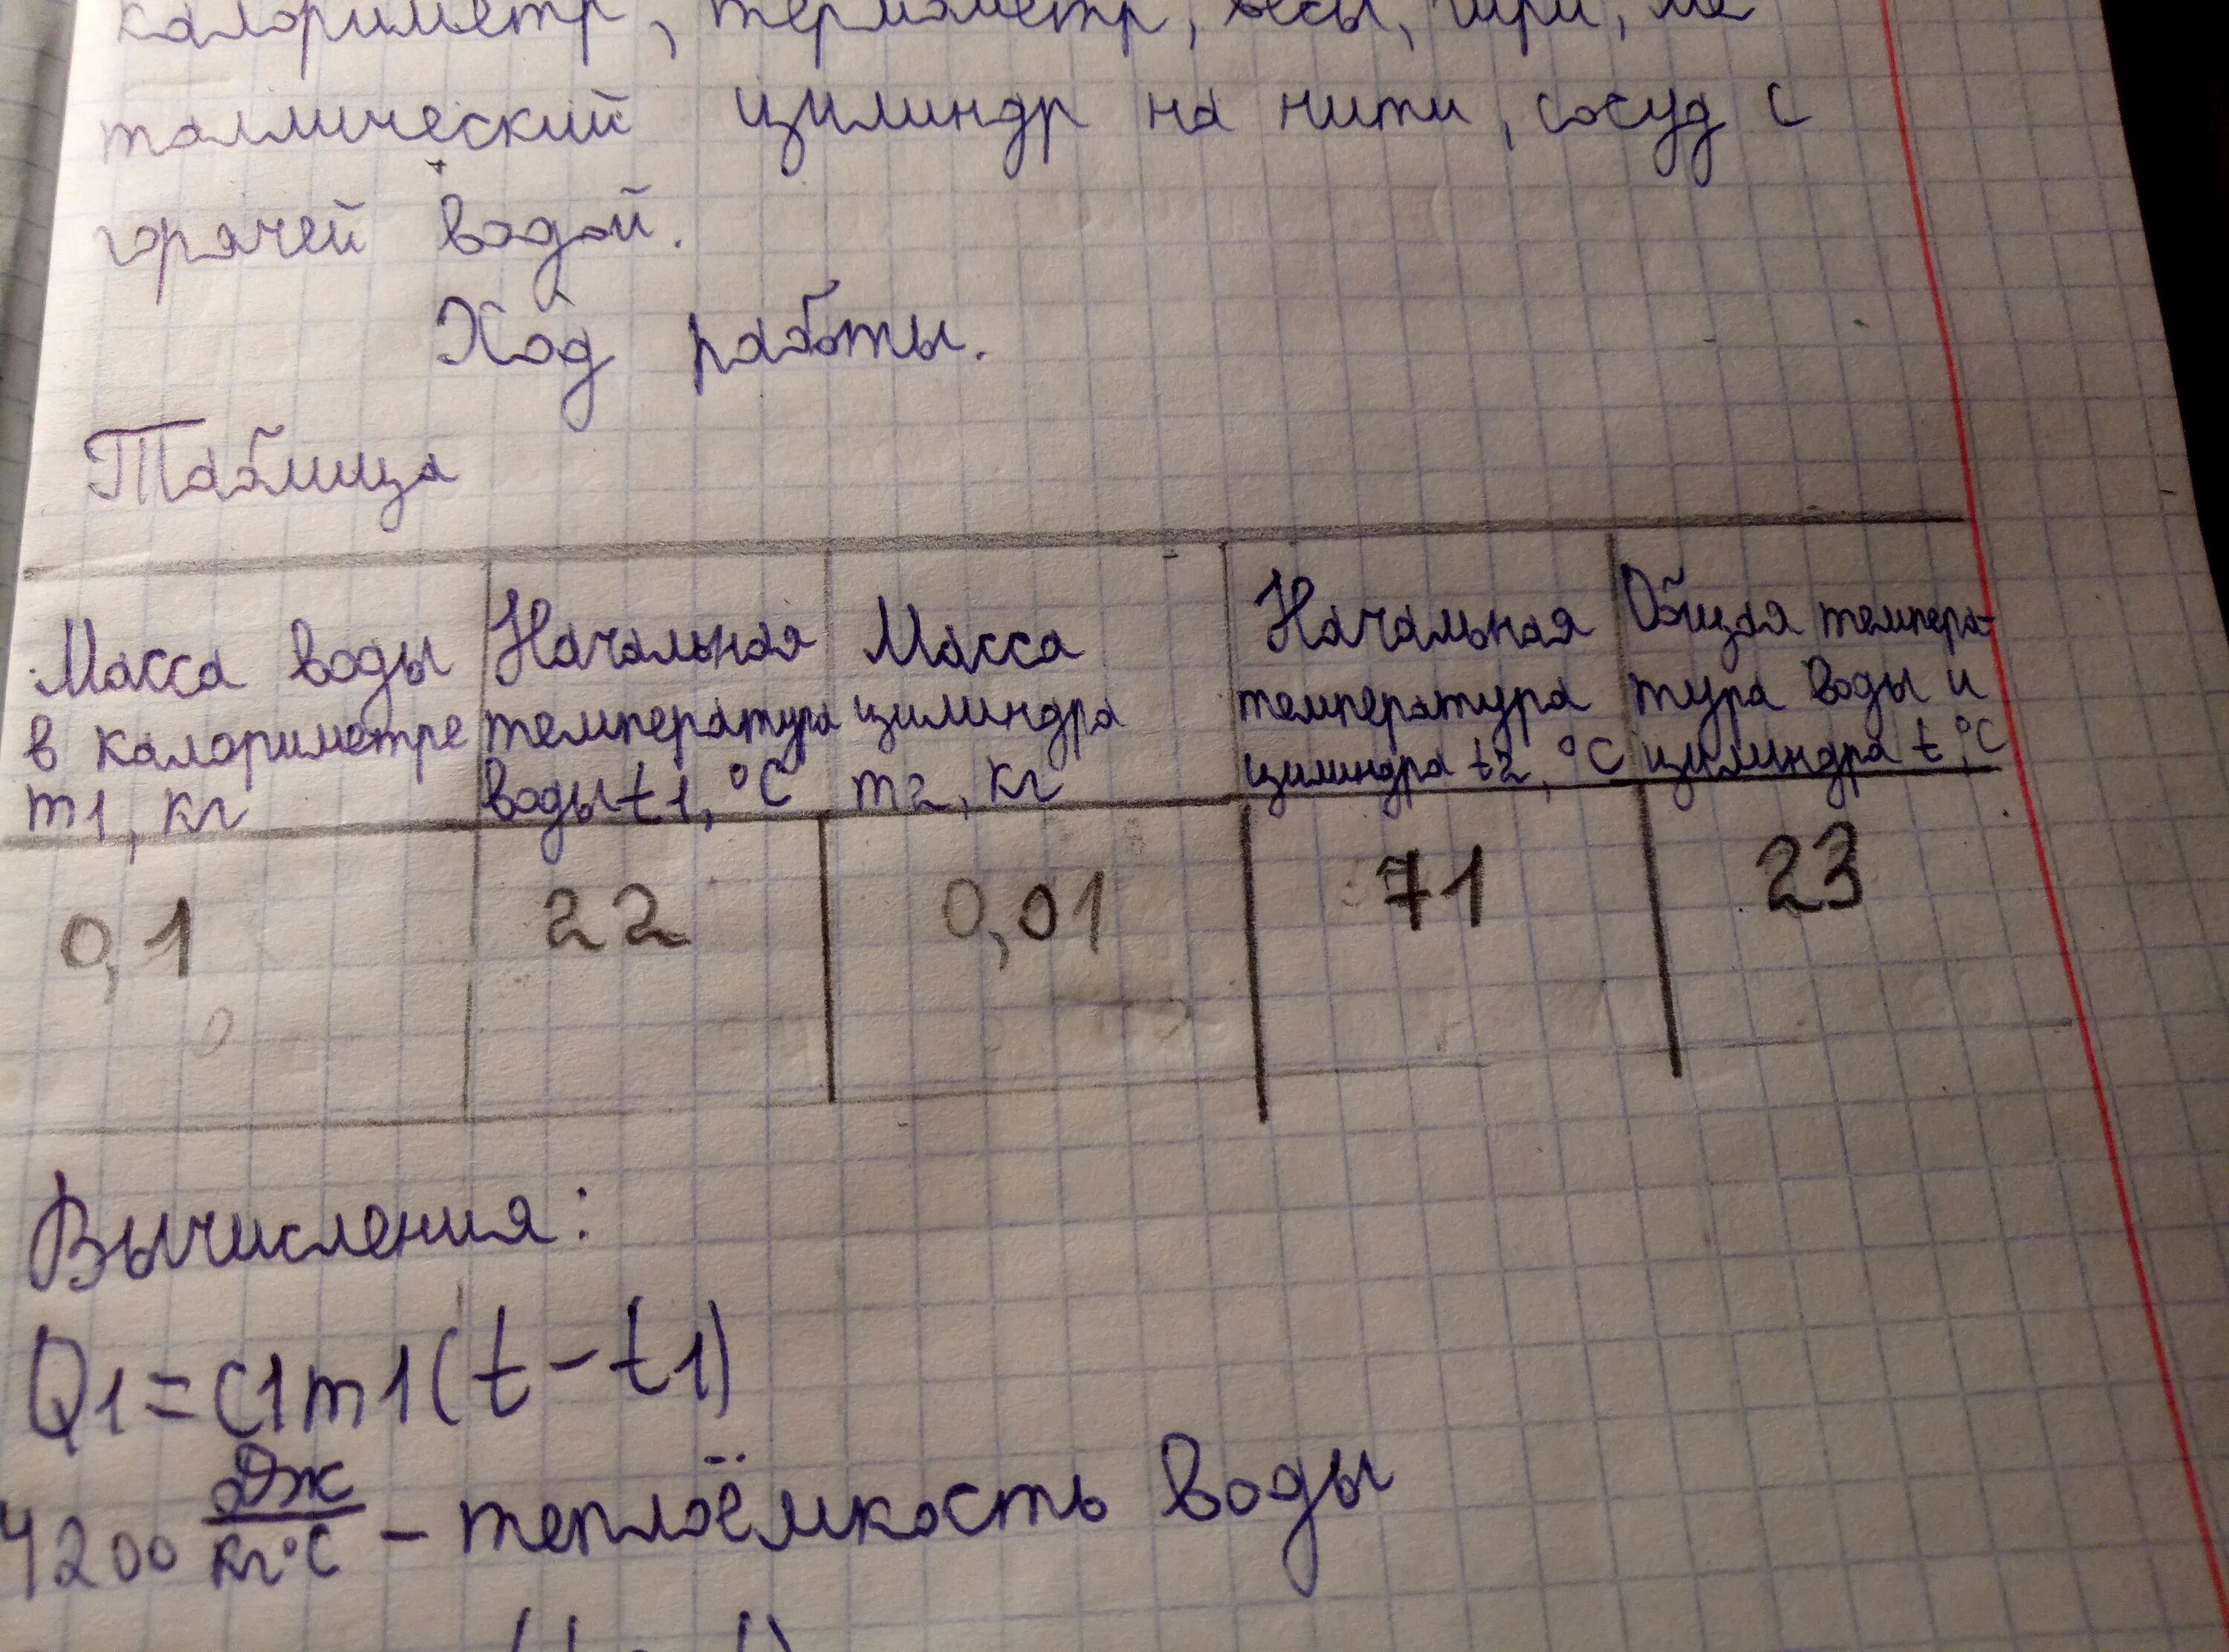 калориметр, термометр, весы, гири, ме
таллический цилиндр на нити, сосуд с
горячей водой.
Ход работы.
Таблица
Масса воды
в калориметре
m1, кг
Начальная
температура
воды t1, °C
Масса
цилиндра
m2, кг
Начальная
температура
цилиндра t2, °C
Общая темпера-
тура воды и
цилиндра t, °C
0,1
22
0,01
71
23
Вычисления:
Q1=c1m1(t-t1)
4200 Дж/кг°C - теплоёмкость воды